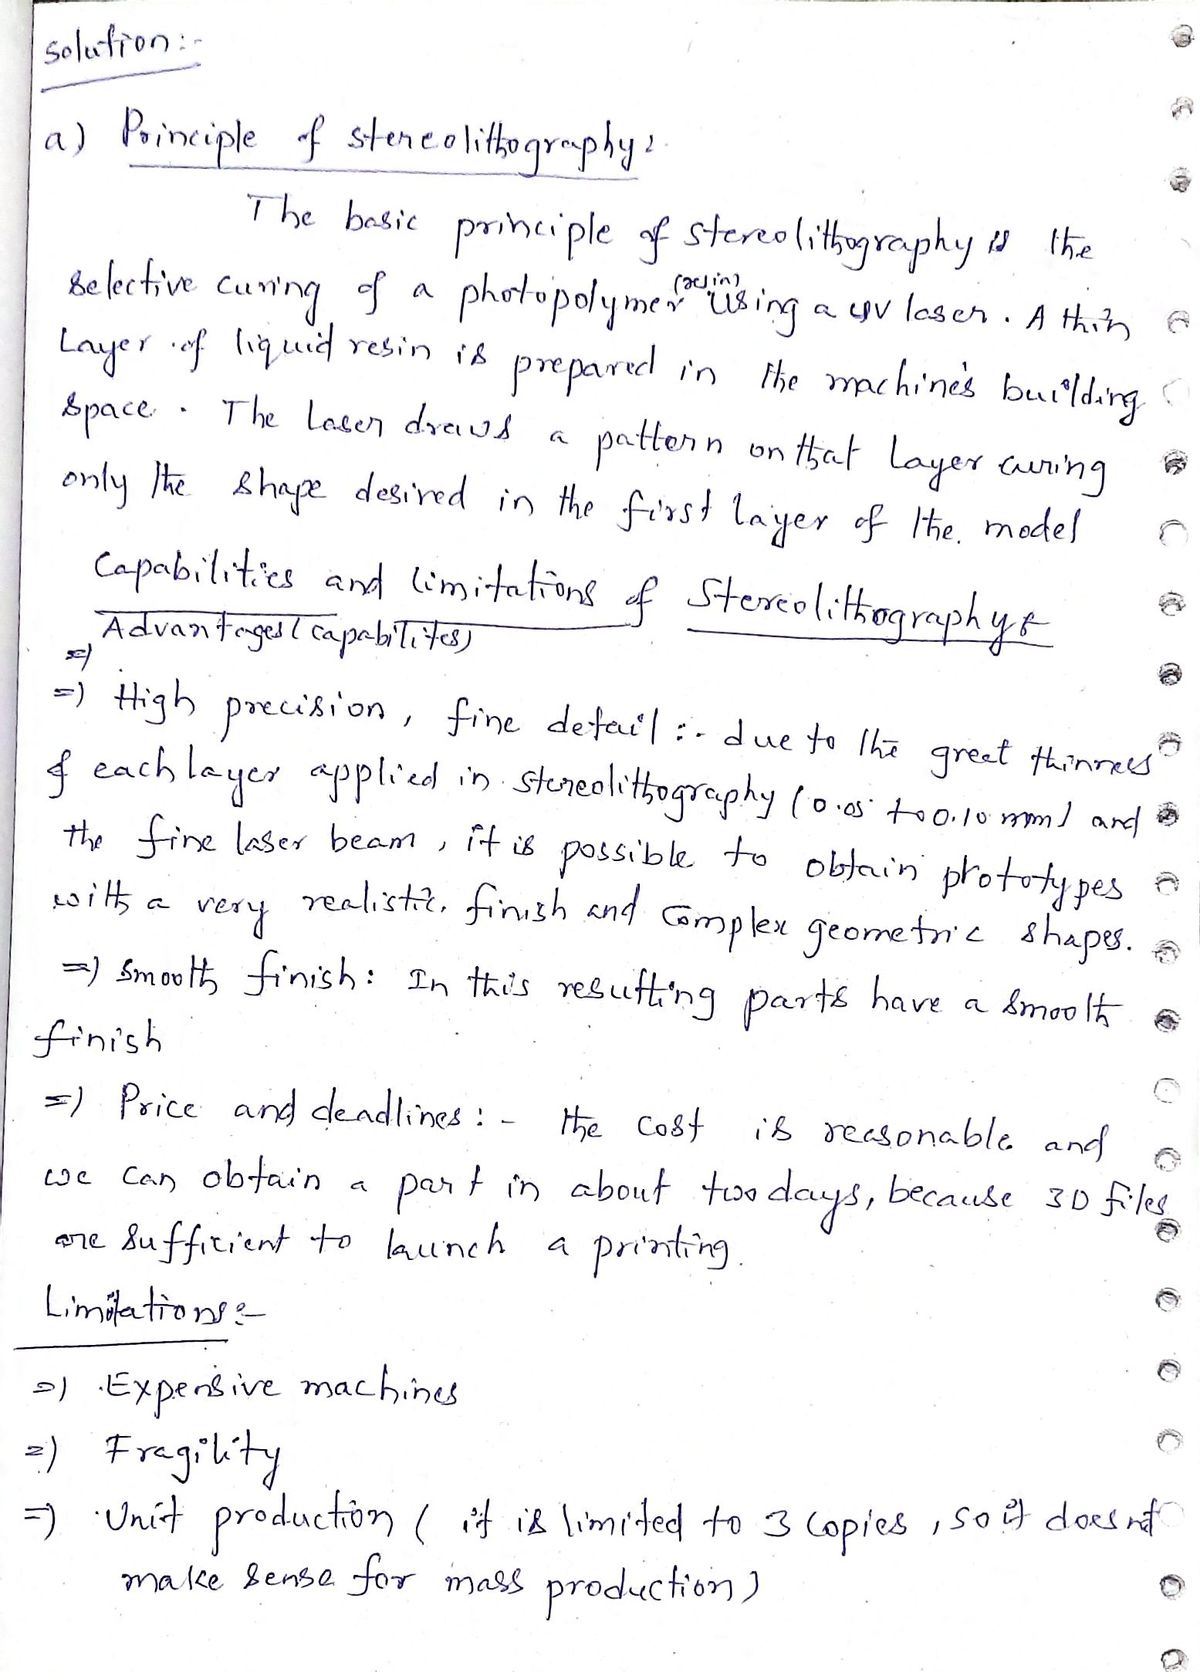 Solution:-
a) Principle of stereolithography:
The basic principle of stereolithography is the
selective curing of a photopolymer (resin) using a UV laser. A thin
Layer of liquid resin is prepared in the machine's building
space. The Laser draws a pattern on that Layer curing
only the shape desired in the first layer of the model
Capabilities and limitations of Stereolithography:
Advantages (capabilites)
=) High precision, fine detail :- due to the great thinness
of each layer applied in stereolithography (0.05 to 0.10 mm) and
the fine laser beam, it is possible to obtain prototypes
with a very realistic finish and complex geometric shapes.
=) Smooth finish: In this resulting parts have a smooth
finish
=) Price and deadlines :- the cost is reasonable and
we can obtain a part in about two days, because 3D files
are sufficient to launch a printing.
Limitations:-
=) Expensive machines
=) Fragility
=) Unit production ( it is limited to 3 copies, so it does not
make sense for mass production)